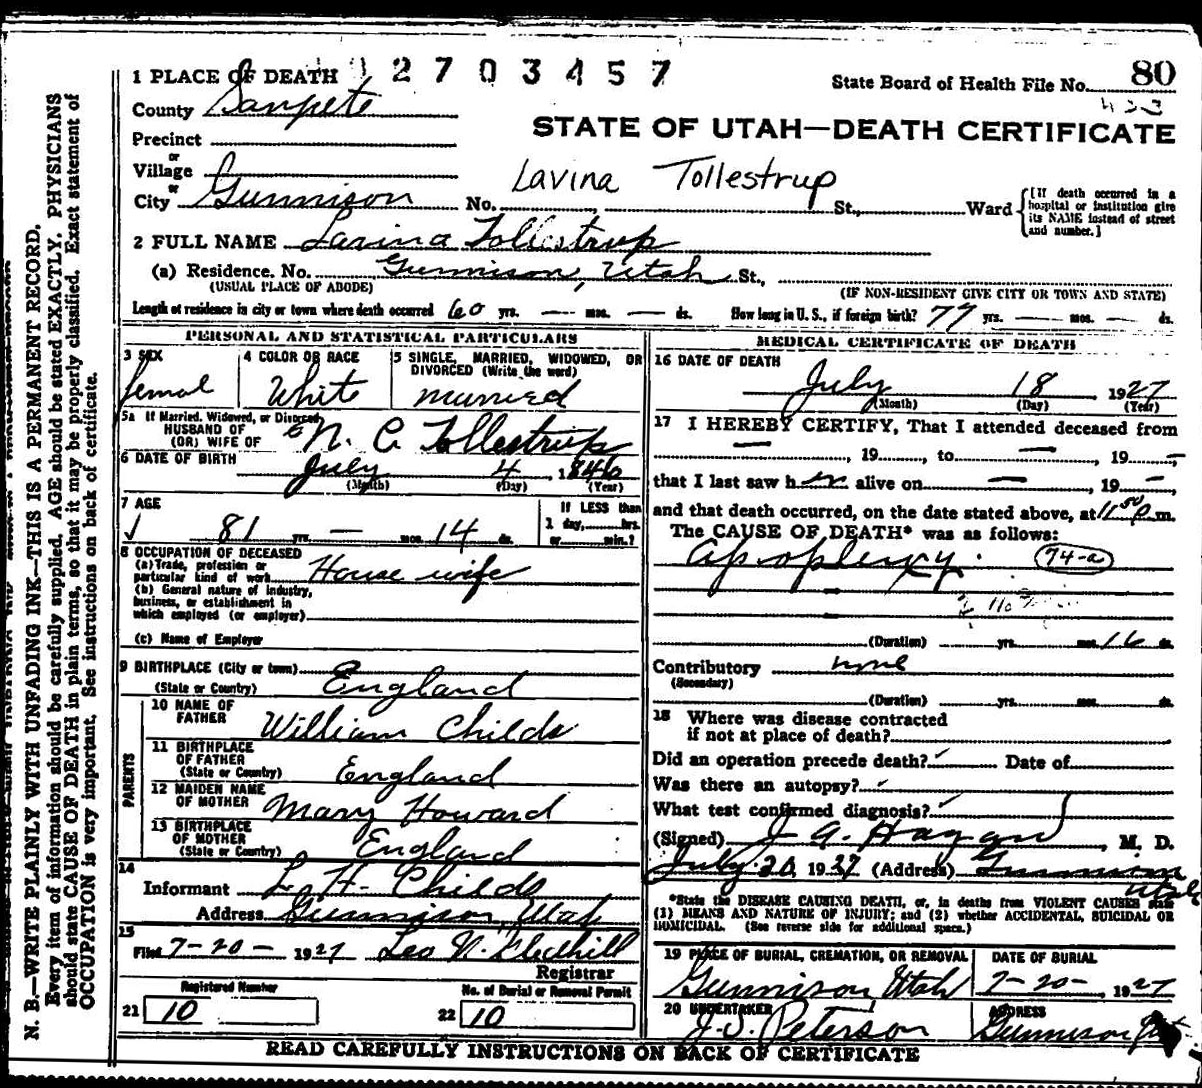 1 PLACE OF DEATH 2 7 0 3 4 5 7
State Board of Health File No. 80
County Sanpete
STATE OF UTAH—DEATH CERTIFICATE
Precinct
or
Village
Lavina Tollestrup
or
City Gunnison No. St., Ward
[If death occurred in a hospital or institution give its NAME instead of street and number.]
2 FULL NAME Lavina Tollestrup
(a) Residence. No. Gunnison, Utah St.,
(USUAL PLACE OF ABODE)
(IF NON-RESIDENT GIVE CITY OR TOWN AND STATE)
Length of residence in city or town where death occurred 60 yrs. — mos. — ds. How long in U. S., if foreign birth? 77 yrs. — mos. — ds.
PERSONAL AND STATISTICAL PARTICULARS
3 SEX
femal
4 COLOR OR RACE
White
5 SINGLE, MARRIED, WIDOWED, OR DIVORCED (Write the word)
married
5a If Married, Widowed, or Divorced,
HUSBAND OF
(OR) WIFE OF N. C Tollestrup
6 DATE OF BIRTH July 4, 1846
(Month) (Day) (Year)
7 AGE
81 yrs. — mos. 14 ds.
If LESS than
1 day, hrs.
or min.?
8 OCCUPATION OF DECEASED
(a) Trade, profession or
particular kind of work House wife
(b) General nature of industry,
business, or establishment in
which employed (or employer)
(c) Name of Employer
9 BIRTHPLACE (City or town)
(State or Country) England
PARENTS
10 NAME OF
FATHER William Childs
11 BIRTHPLACE
OF FATHER
(State or Country) England
12 MAIDEN NAME
OF MOTHER Mary Howard
13 BIRTHPLACE
OF MOTHER
(State or Country) England
14
Informant L. H. Childs
Address Gunnison, Utah
15
Filed 7-20- 1927 Leo N. Gledhill
Registrar
Registered Number
21 10
No. of Burial or Removal Permit
22 10
MEDICAL CERTIFICATE OF DEATH
16 DATE OF DEATH
July 18 1927
(Month) (Day) (Year)
17 I HEREBY CERTIFY, That I attended deceased from
—, 19, to —, 19 —
that I last saw h er alive on —, 19 —
and that death occurred, on the date stated above, at 11 50 P. m.
The CAUSE OF DEATH* was as follows:
apoplexy. 74-a
(Duration) yrs. mos. 16 ds.
Contributory none
(Secondary)
(Duration) yrs. mos. ds.
18 Where was disease contracted
if not at place of death?
Did an operation precede death? Date of
Was there an autopsy?
What test confirmed diagnosis?
(Signed) J. A. Hagan, M. D.
July 20, 1927 (Address) Gunnison
Utah
*State the DISEASE CAUSING DEATH, or, in deaths from VIOLENT CAUSES state
(1) MEANS AND NATURE OF INJURY; and (2) whether ACCIDENTAL, SUICIDAL OR
HOMICIDAL. (See reverse side for additional space.)
19 PLACE OF BURIAL, CREMATION, OR REMOVAL
Gunnison, Utah
DATE OF BURIAL
7-20-, 1927
20 UNDERTAKER
J. S. Peterson
ADDRESS
Gunnison
READ CAREFULLY INSTRUCTIONS ON BACK OF CERTIFICATE
N. B.—WRITE PLAINLY WITH UNFADING INK—THIS IS A PERMANENT RECORD.
Every item of information should be carefully supplied. AGE should be stated EXACTLY. PHYSICIANS
should state CAUSE OF DEATH in plain terms, so that it may be properly classified. Exact statement of
OCCUPATION is very important. See instructions on back of certificate.